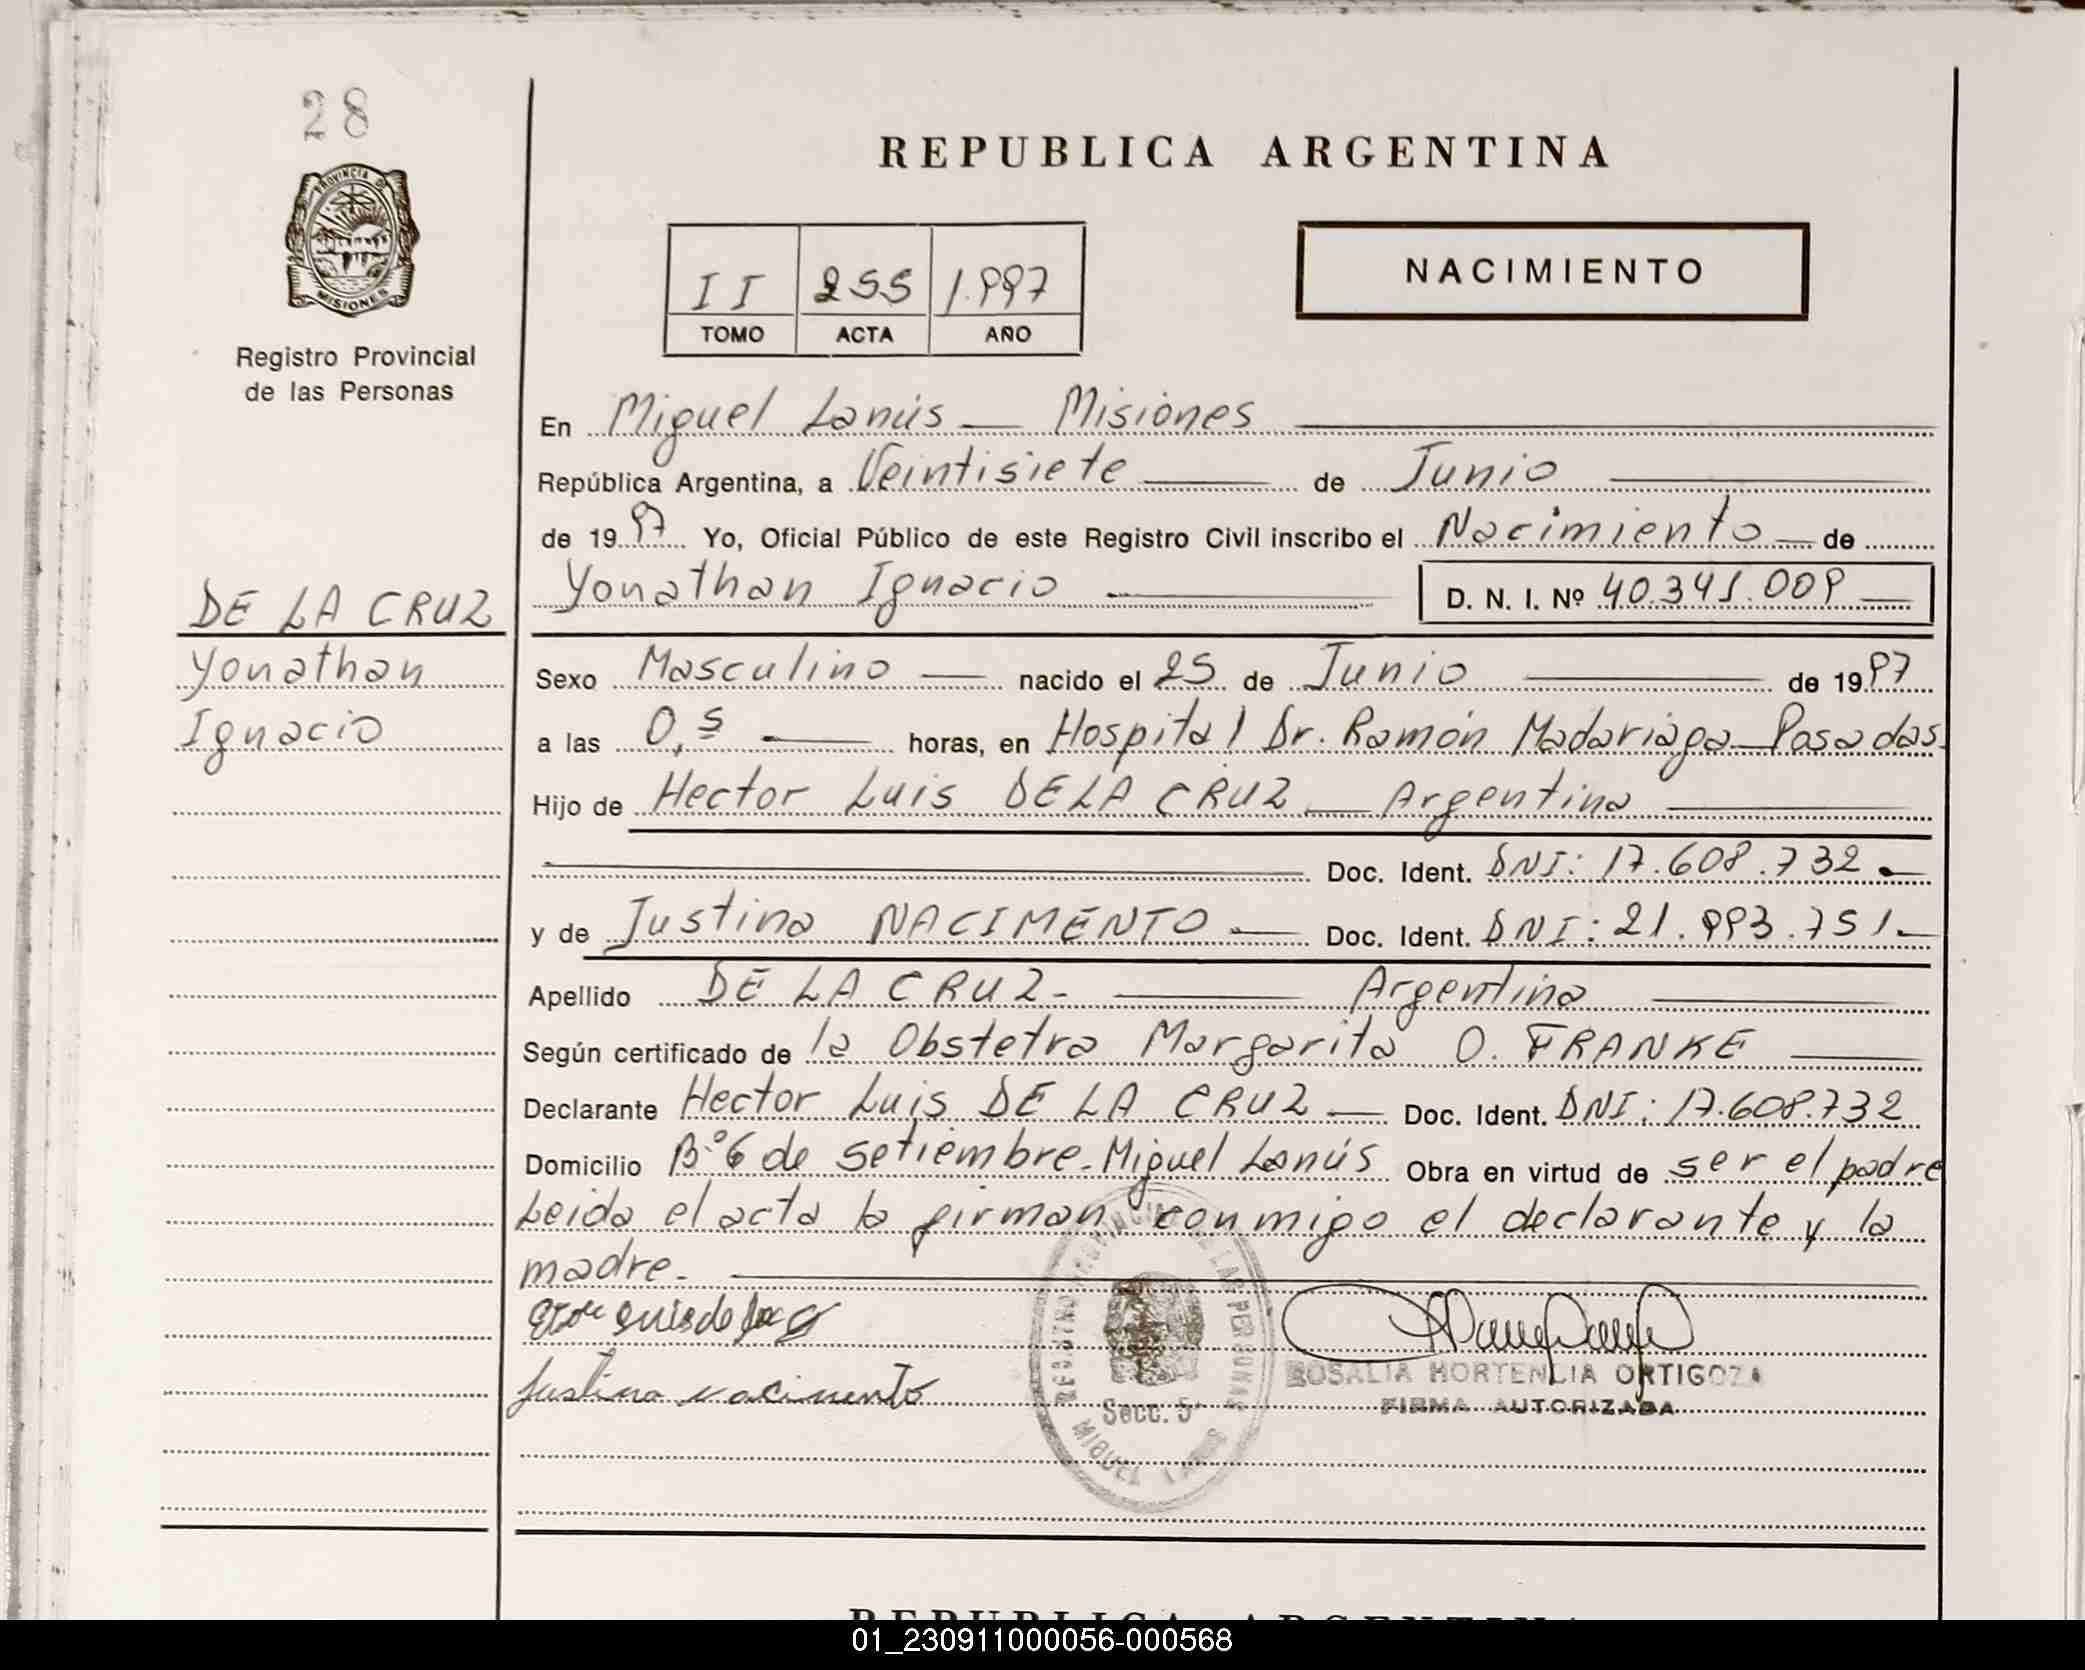 28
PROVINCIA DE
MISIONES
Registro Provincial
de las Personas
REPUBLICA ARGENTINA
II 255 1.997
TOMO ACTA AÑO
NACIMIENTO
En Miguel Lanús — Misiones
República Argentina, a Veintisiete de Junio
de 1997 Yo, Oficial Público de este Registro Civil inscribo el Nacimiento de
Yonathan Ignacio D. N. I. Nº 40.341.009
DE LA CRUZ
Yonathan
Ignacio
Sexo Masculino nacido el 25 de Junio de 1997
a las 0,5 horas, en Hospital Dr. Ramón Madariaga - Posadas.
Hijo de Hector Luis DE LA CRUZ — Argentina
Doc. Ident. DNI: 17.608.732.
y de Justina NACIMENTO Doc. Ident. DNI: 21.993.751.
Apellido DE LA CRUZ. Argentina
Según certificado de la Obstetra Margarita O. FRANKE
Declarante Hector Luis DE LA CRUZ Doc. Ident. DNI: 17.608.732
Domicilio Bº 6 de setiembre. Miguel Lanús Obra en virtud de ser el padre
Leida el acta la firman conmigo el declarante y la
madre.
Justina nacimento
REGISTRO PROVINCIAL DE LAS PERSONAS
Secc. 5ª
MIGUEL LANUS
ROSALIA HORTENCIA ORTIGOZA
FIRMA AUTORIZADA
REPUBLICA ARGENTINA
01_230911000056-000568